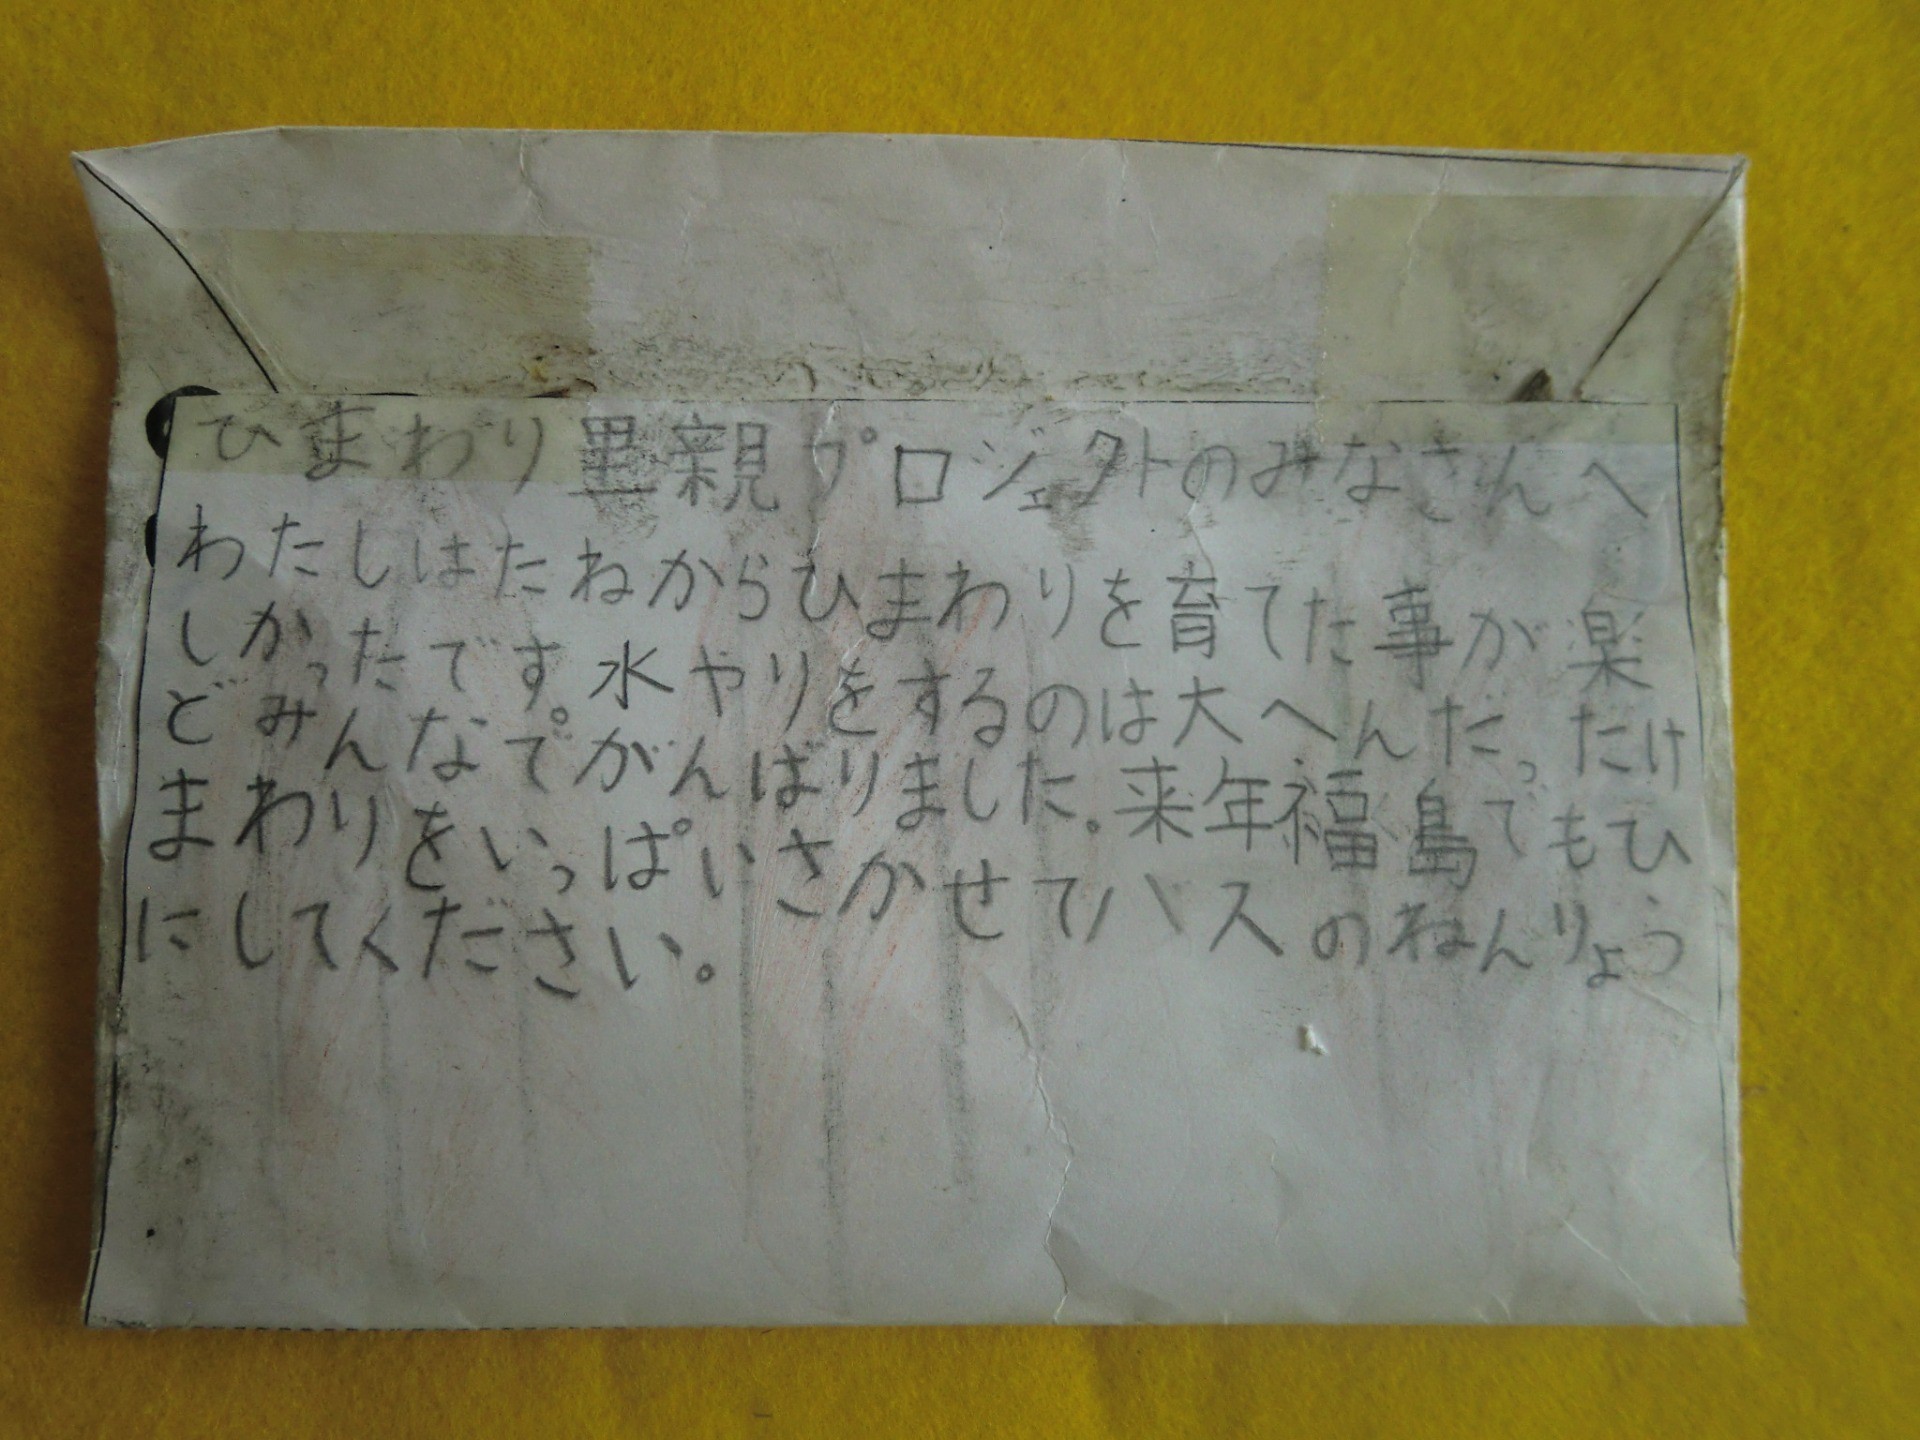 ひまわり里親プロジェクトのみなさんへ
わたしはたねからひまわりを育てた事が楽
しかったです。水やりをするのは大へんだったけ
どみんなでがんばりました。来年福島でもひ
まわりをいっぱいさかせてバスのねんりょう
にしてください。